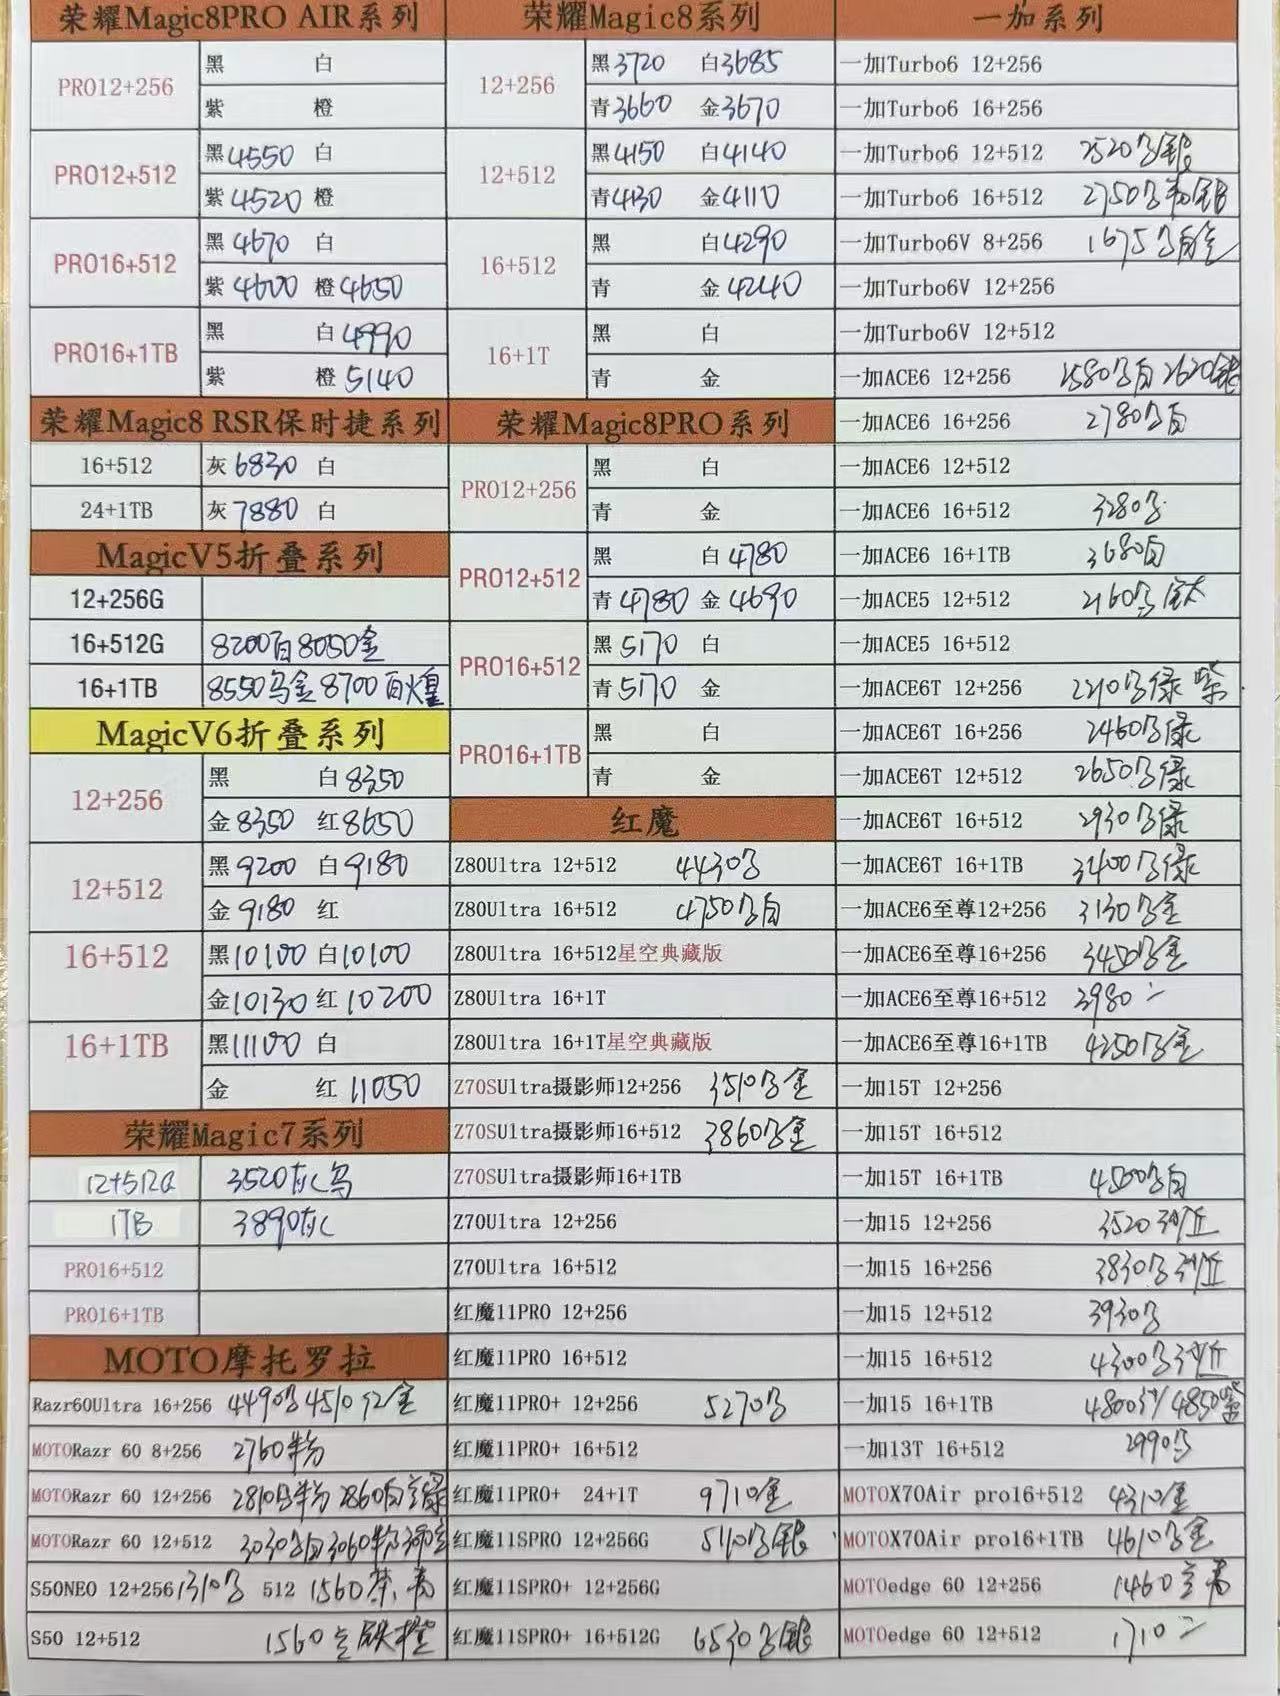 荣耀Magic8PRO AIR系列
PRO12+256 黑 白
紫 橙
PRO12+512 黑4550 白
紫4520 橙
PRO16+512 黑4670 白
紫4600 橙4650
PRO16+1TB 黑 白4990
紫 橙5140
荣耀Magic8 RSR保时捷系列
16+512 灰6830 白
24+1TB 灰7880 白
MagicV5折叠系列
12+256G
16+512G 8200白8050金
16+1TB 8550乌金 8700白
MagicV6折叠系列
12+256 黑 白8350
金8350 红8650
12+512 黑9200 白9180
金9180 红
16+512 黑10100 白10100
金10130 红10200
16+1TB 黑11100 白
金 红11050
荣耀Magic7系列
12+512G 3520灰
1TB 3890灰
PRO16+512
PRO16+1TB
MOTO摩托罗拉
Razr60Ultra 16+256 4490 4510红金
MOTORazr 60 8+256 2760粉
MOTORazr 60 12+256 2810 粉 2860白 绿
MOTORazr 60 12+512 3030 白3060粉
S50NEO 12+256 1310 512 1560茶
S50 12+512 1560
荣耀Magic8系列
12+256 黑3720 白3685
青3660 金3670
12+512 黑4150 白4140
青4130 金4110
16+512 黑 白4290
青 金4240
16+1T 黑 白
青 金
荣耀Magic8PRO系列
PRO12+256 黑 白
青 金
PRO12+512 黑 白4780
青4780 金4690
PRO16+512 黑5170 白
青5170 金
PRO16+1TB 黑 白
青 金
红魔
Z80Ultra 12+512 4430
Z80Ultra 16+512 4750 白
Z80Ultra 16+512星空典藏版
Z80Ultra 16+1T
Z80Ultra 16+1T星空典藏版
Z70SUltra摄影师12+256 3510 金
Z70SUltra摄影师16+512 3860 金
Z70SUltra摄影师16+1TB
Z70Ultra 12+256
Z70Ultra 16+512
红魔11PRO 12+256
红魔11PRO 16+512
红魔11PRO+ 12+256 5270
红魔11PRO+ 16+512
红魔11PRO+ 24+1T 9710金
红魔11SPRO 12+256G 5110 银
红魔11SPRO+ 12+256G
红魔11SPRO+ 16+512G 6530 银
一加系列
一加Turbo6 12+256
一加Turbo6 16+256
一加Turbo6 12+512 2520 银
一加Turbo6 16+512 2750
一加Turbo6V 8+256 1675
一加Turbo6V 12+256
一加Turbo6V 12+512
一加ACE6 12+256 2580 白 2620银
一加ACE6 16+256 2780 白
一加ACE6 12+512
一加ACE6 16+512 3280
一加ACE6 16+1TB 3680白
一加ACE5 12+512 2160 钛
一加ACE5 16+512
一加ACE6T 12+256 2210 绿 紫
一加ACE6T 16+256 2460 绿
一加ACE6T 12+512 2650 绿
一加ACE6T 16+512 2930 绿
一加ACE6T 16+1TB 3400 绿
一加ACE6至尊12+256 3130 金
一加ACE6至尊16+256 3450 金
一加ACE6至尊16+512 3980
一加ACE6至尊16+1TB 4250 金
一加15T 12+256
一加15T 16+512
一加15T 16+1TB 4500 白
一加15 12+256 3520沙丘
一加15 16+256 3830 沙丘
一加15 12+512 3930
一加15 16+512 4300 沙丘
一加15 16+1TB 4800沙 4850紫
一加13T 16+512 2990
MOTOX70Air pro16+512 4310金
MOTOX70Air pro16+1TB 4610 金
MOTOedge 60 12+256 1460
MOTOedge 60 12+512 1710